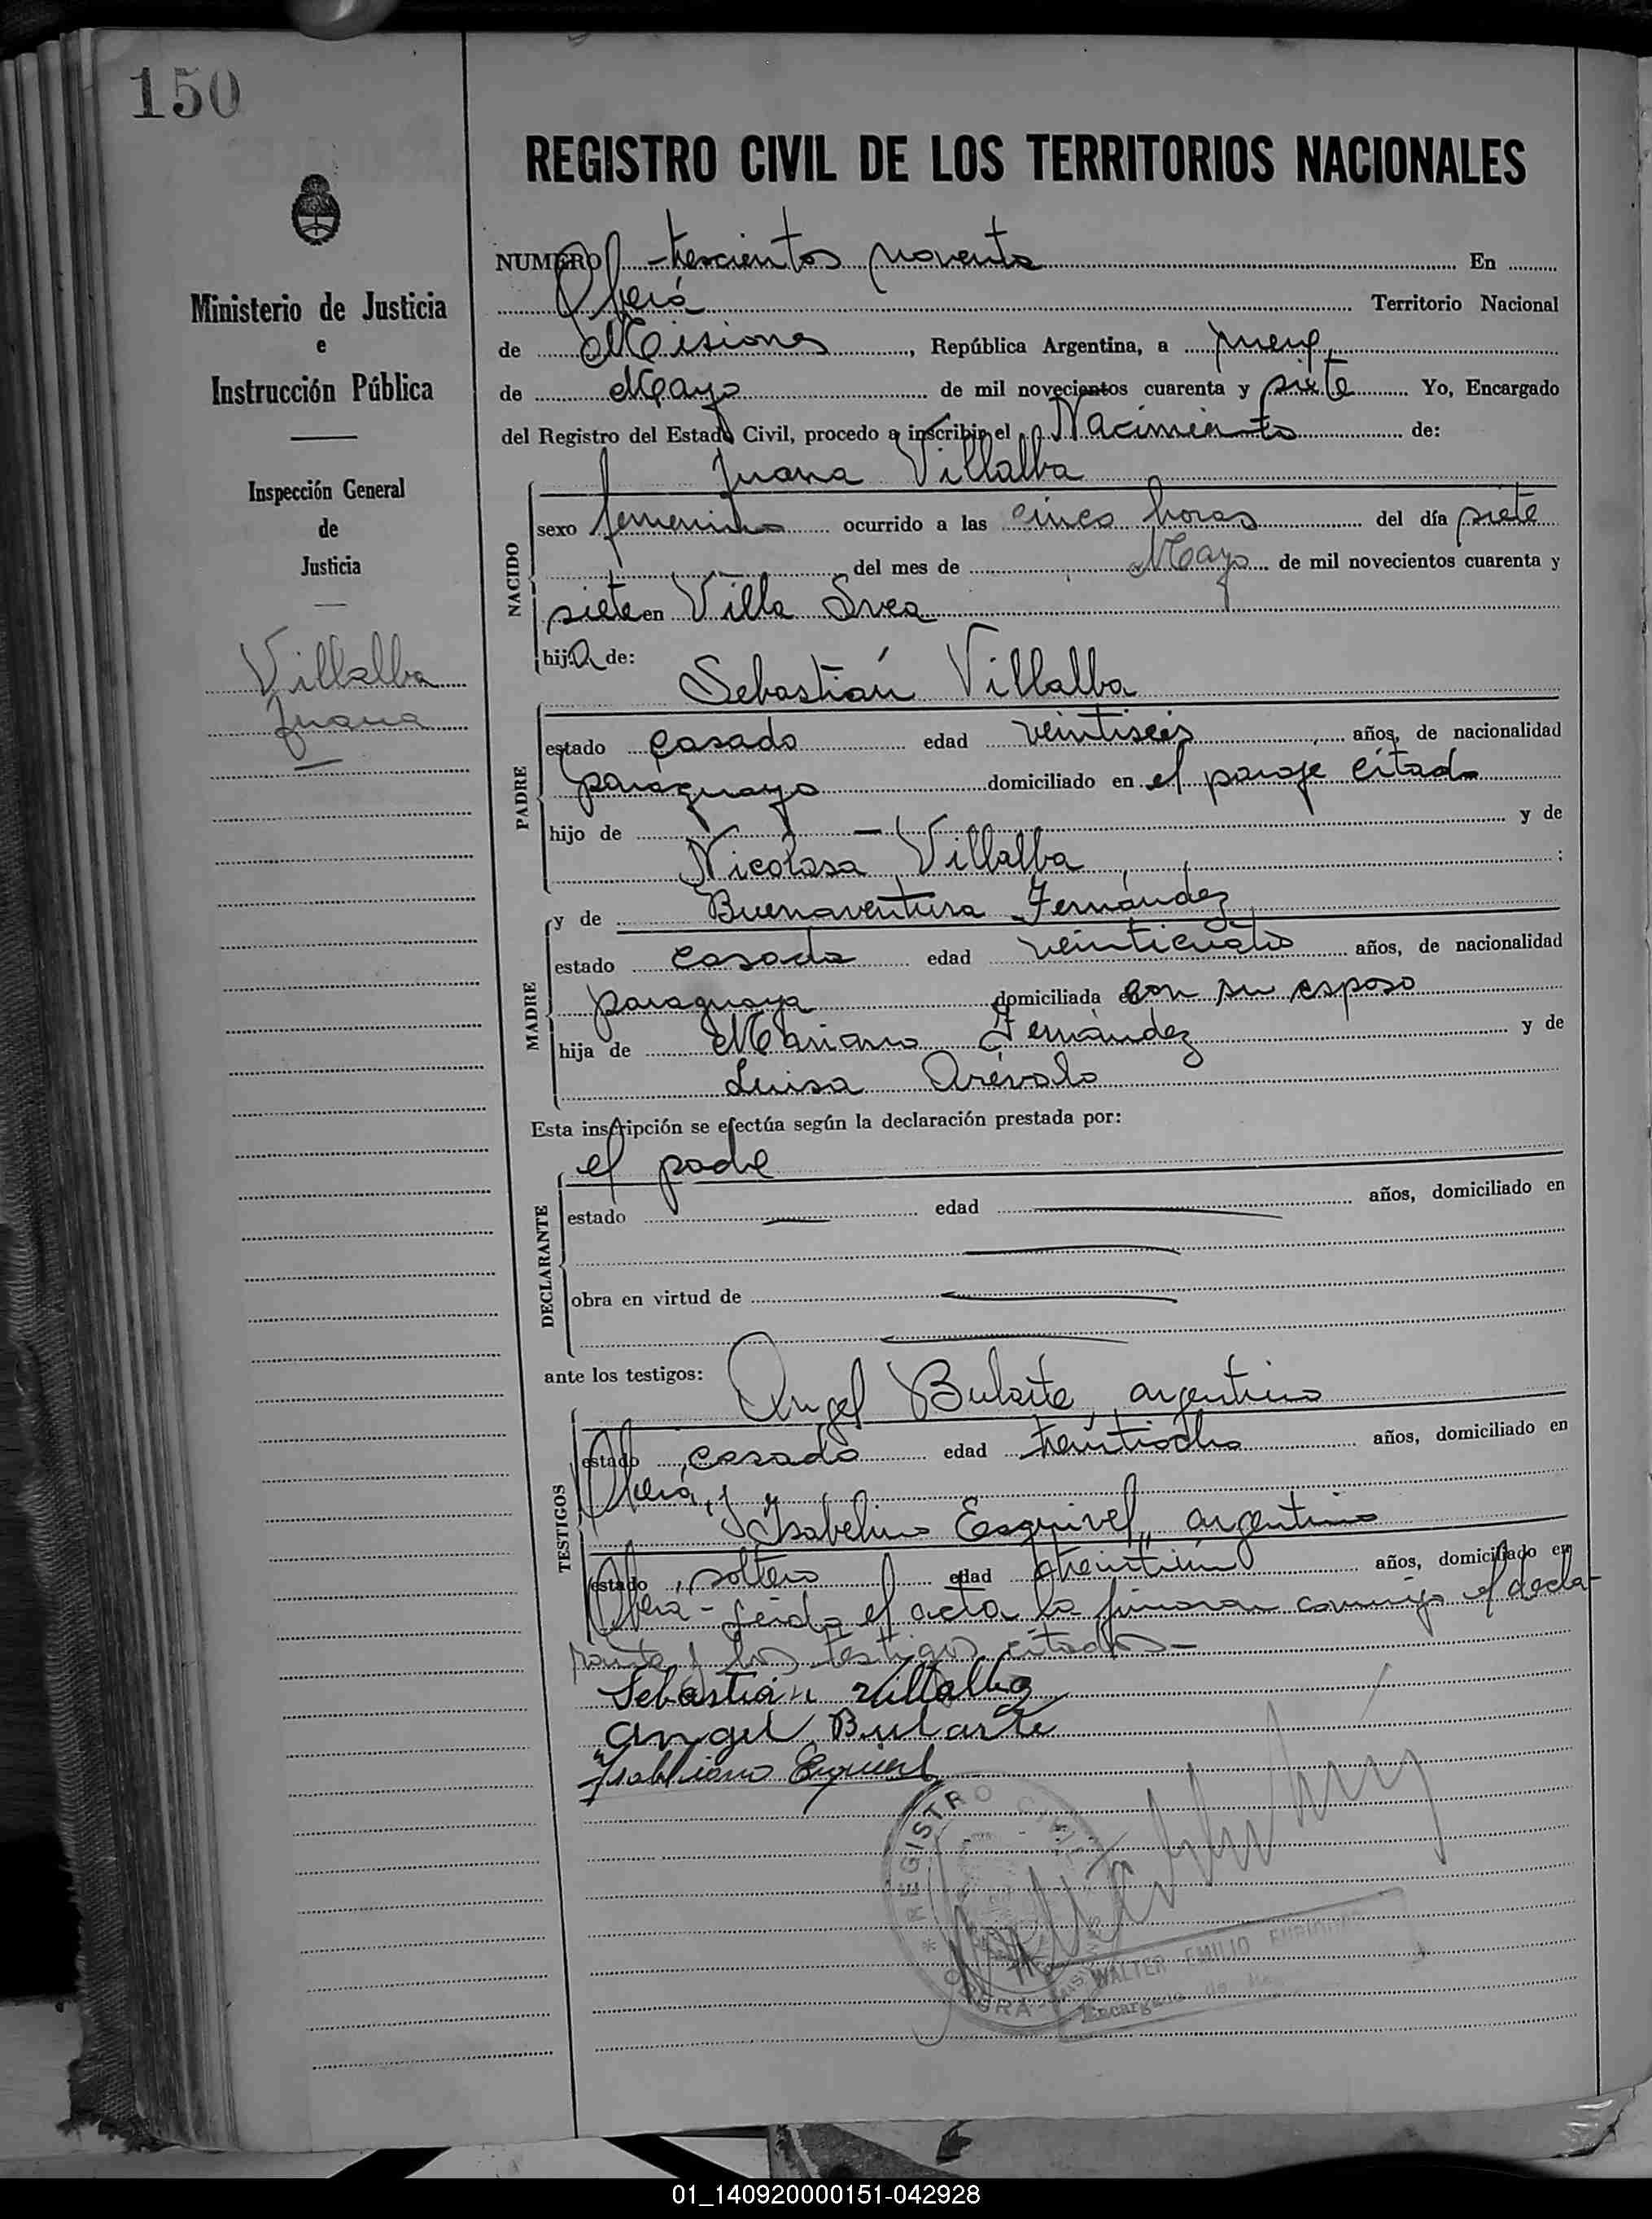 150
REGISTRO CIVIL DE LOS TERRITORIOS NACIONALES
Ministerio de Justicia
e
Instrucción Pública
Inspección General
de
Justicia
Villalba
Juana
NUMERO trescientos noventa En
Oberá Territorio Nacional
de Misiones, República Argentina, a nueve
de Mayo de mil novecientos cuarenta y siete Yo, Encargado
del Registro del Estado Civil, procedo a inscribir el Nacimiento de:
Juana Villalba
NACIDO
sexo femenino ocurrido a las cinco horas del día siete
del mes de Mayo de mil novecientos cuarenta y
siete en Villa Svea
hija de:
Sebastián Villalba
PADRE
estado casado edad veintiseis años, de nacionalidad
paraguayo domiciliado en el paraje citado
hijo de — y de
Nicolasa Villalba ;
y de Buenaventura Fernández
MADRE
estado casada edad veinticuatro años, de nacionalidad
paraguaya domiciliada con su esposo
hija de Mariano Fernández y de
Luisa Arévalo
Esta inscripción se efectúa según la declaración prestada por:
el padre
DECLARANTE
estado edad años, domiciliado en
obra en virtud de
ante los testigos:
Angel Bularte, argentino
TESTIGOS
estado casado edad treintiocho años, domiciliado en
Oberá, y
Isabelino Esquivel, argentino
estado soltero edad treintiún años, domiciliado en
Oberá - leida el acta la firmaron conmigo el decla-
rante y los testigos citados -
Sebastián Villalba
Angel Bularte
Isabelino Esquivel
REGISTRO CIVIL
OBERA
WALTER EMILIO
Encargado de
01_140920000151-042928